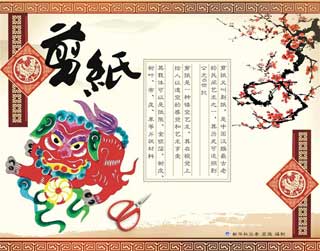 剪紙
剪纸又叫刻纸，是中国汉族最古老
的民间艺术之一，其历史可追溯到
公元6世纪
剪纸是一种镂空艺术，其在视觉上
给人以透空的感觉和艺术享受
其载体可以是纸张、金银箔、树皮、
树叶、布、皮、革等片状材料
新华社记者 编制